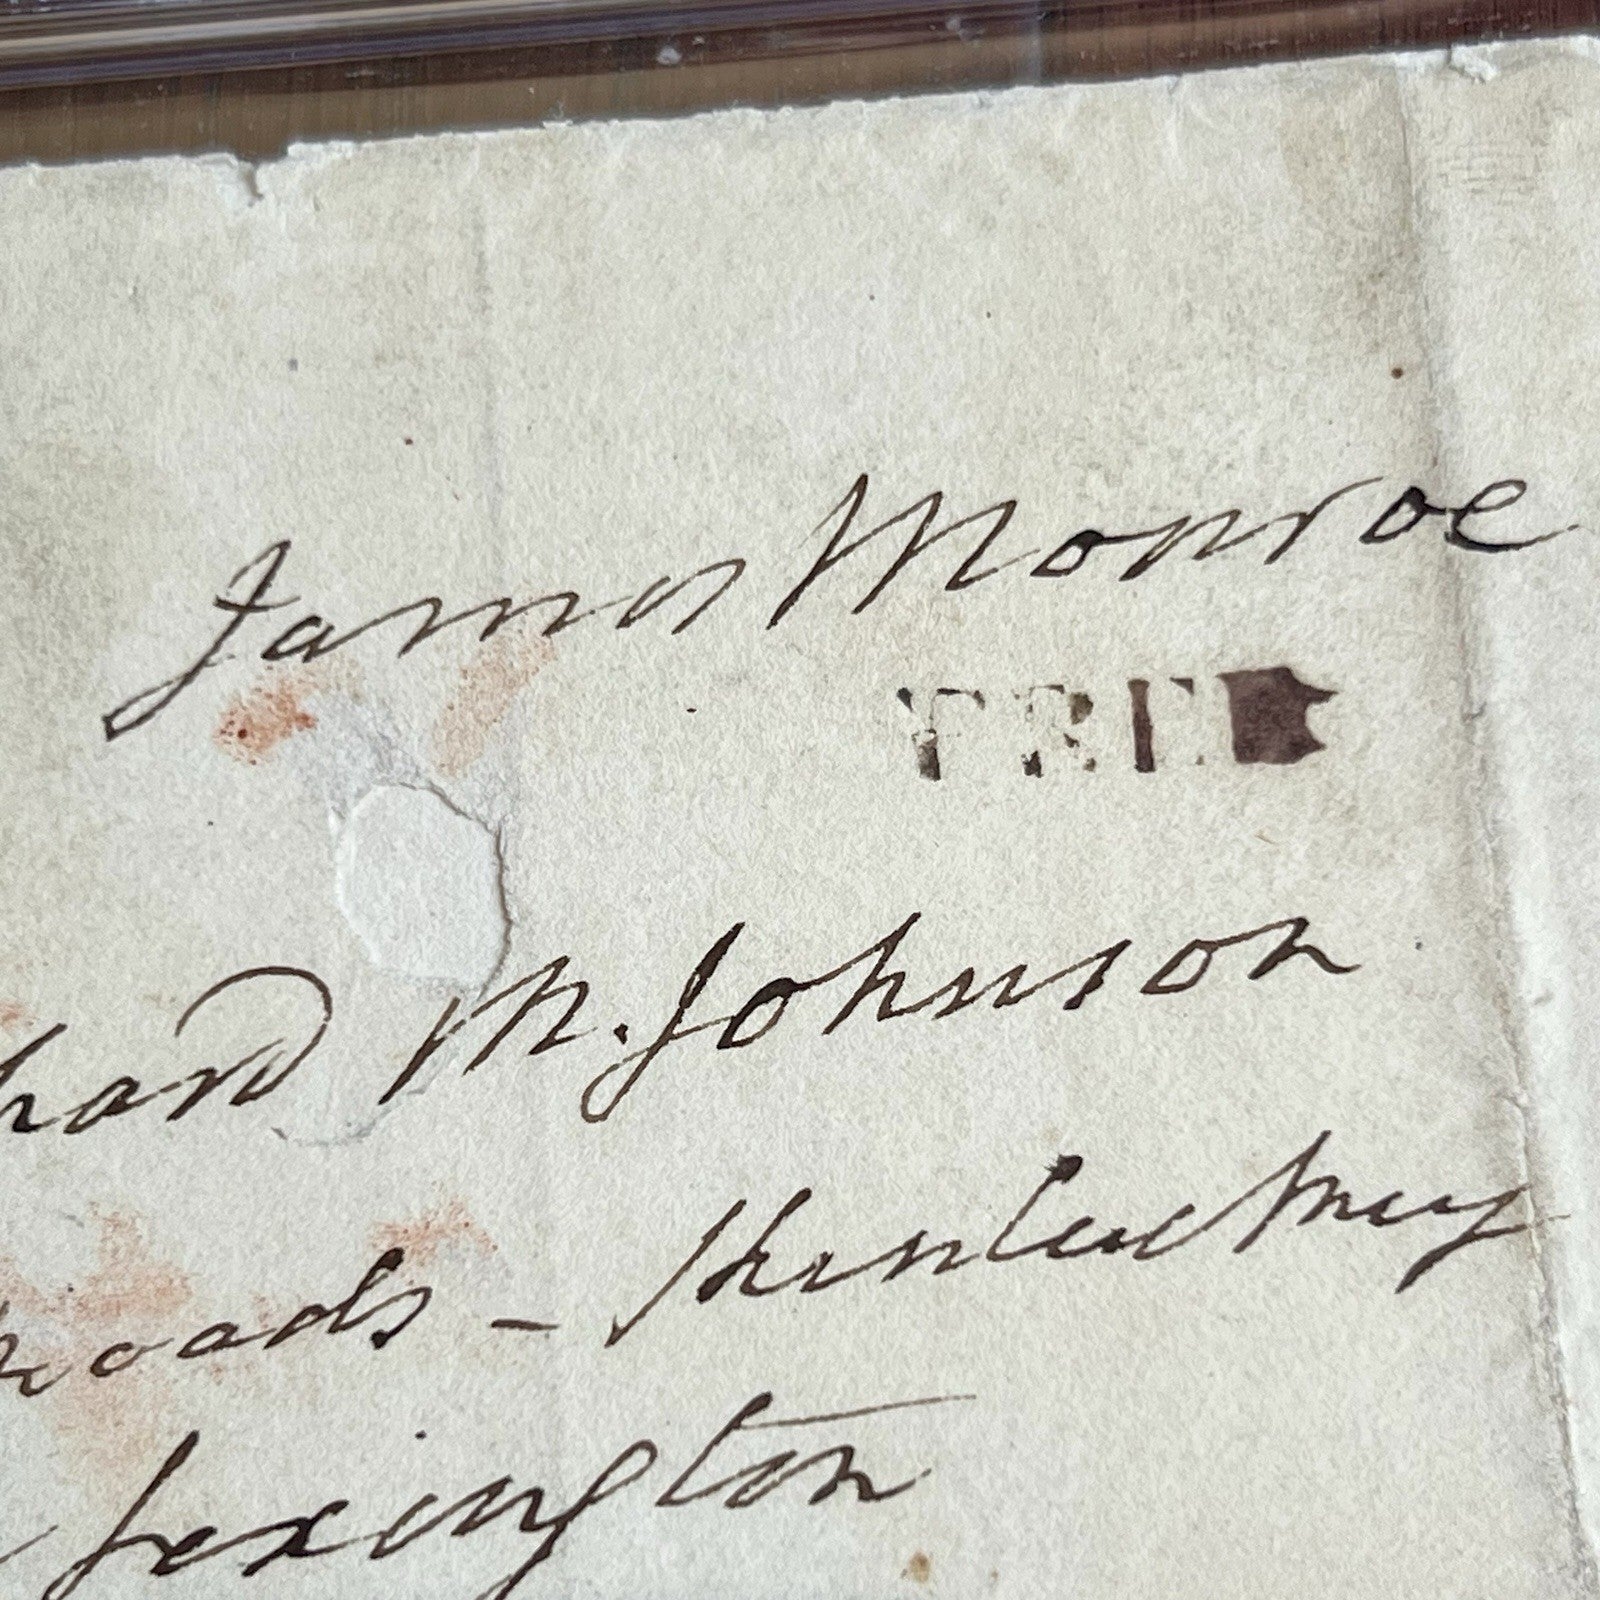 James Monroe
FREE
hard M. Johnson
roads - Kentucky
Lexington